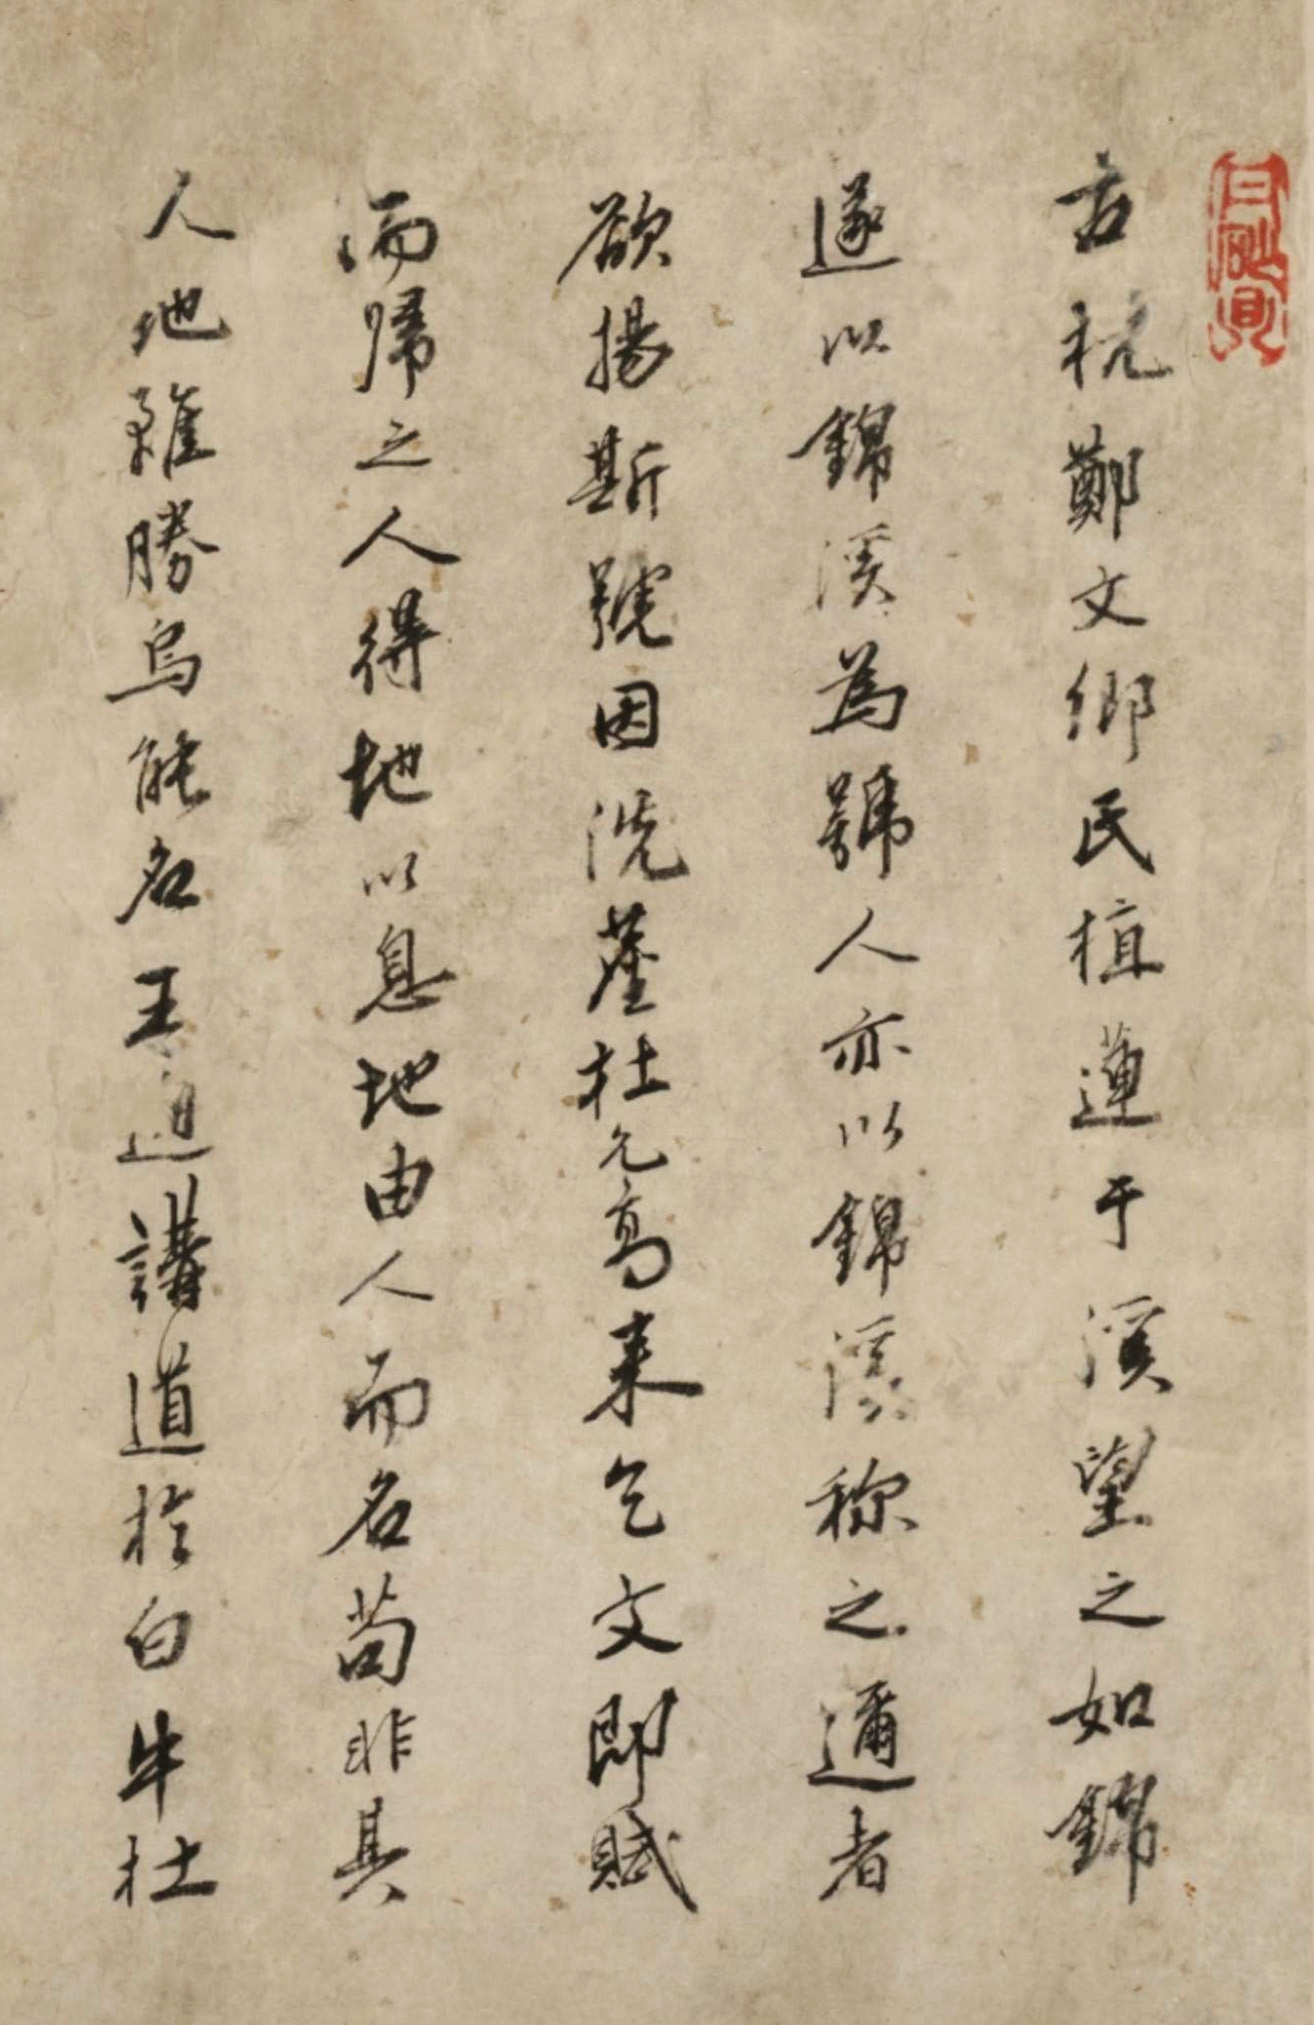 古杭鄭文卿民植蓮于溪望之如錦
遂以錦溪為號人亦以錦溪称之邇者
欲揚斯號因冼蓙杜允高来乞文即賦
而歸之人得地以息地由人而名苟非其
人地雖勝烏能名王通講道於白牛杜